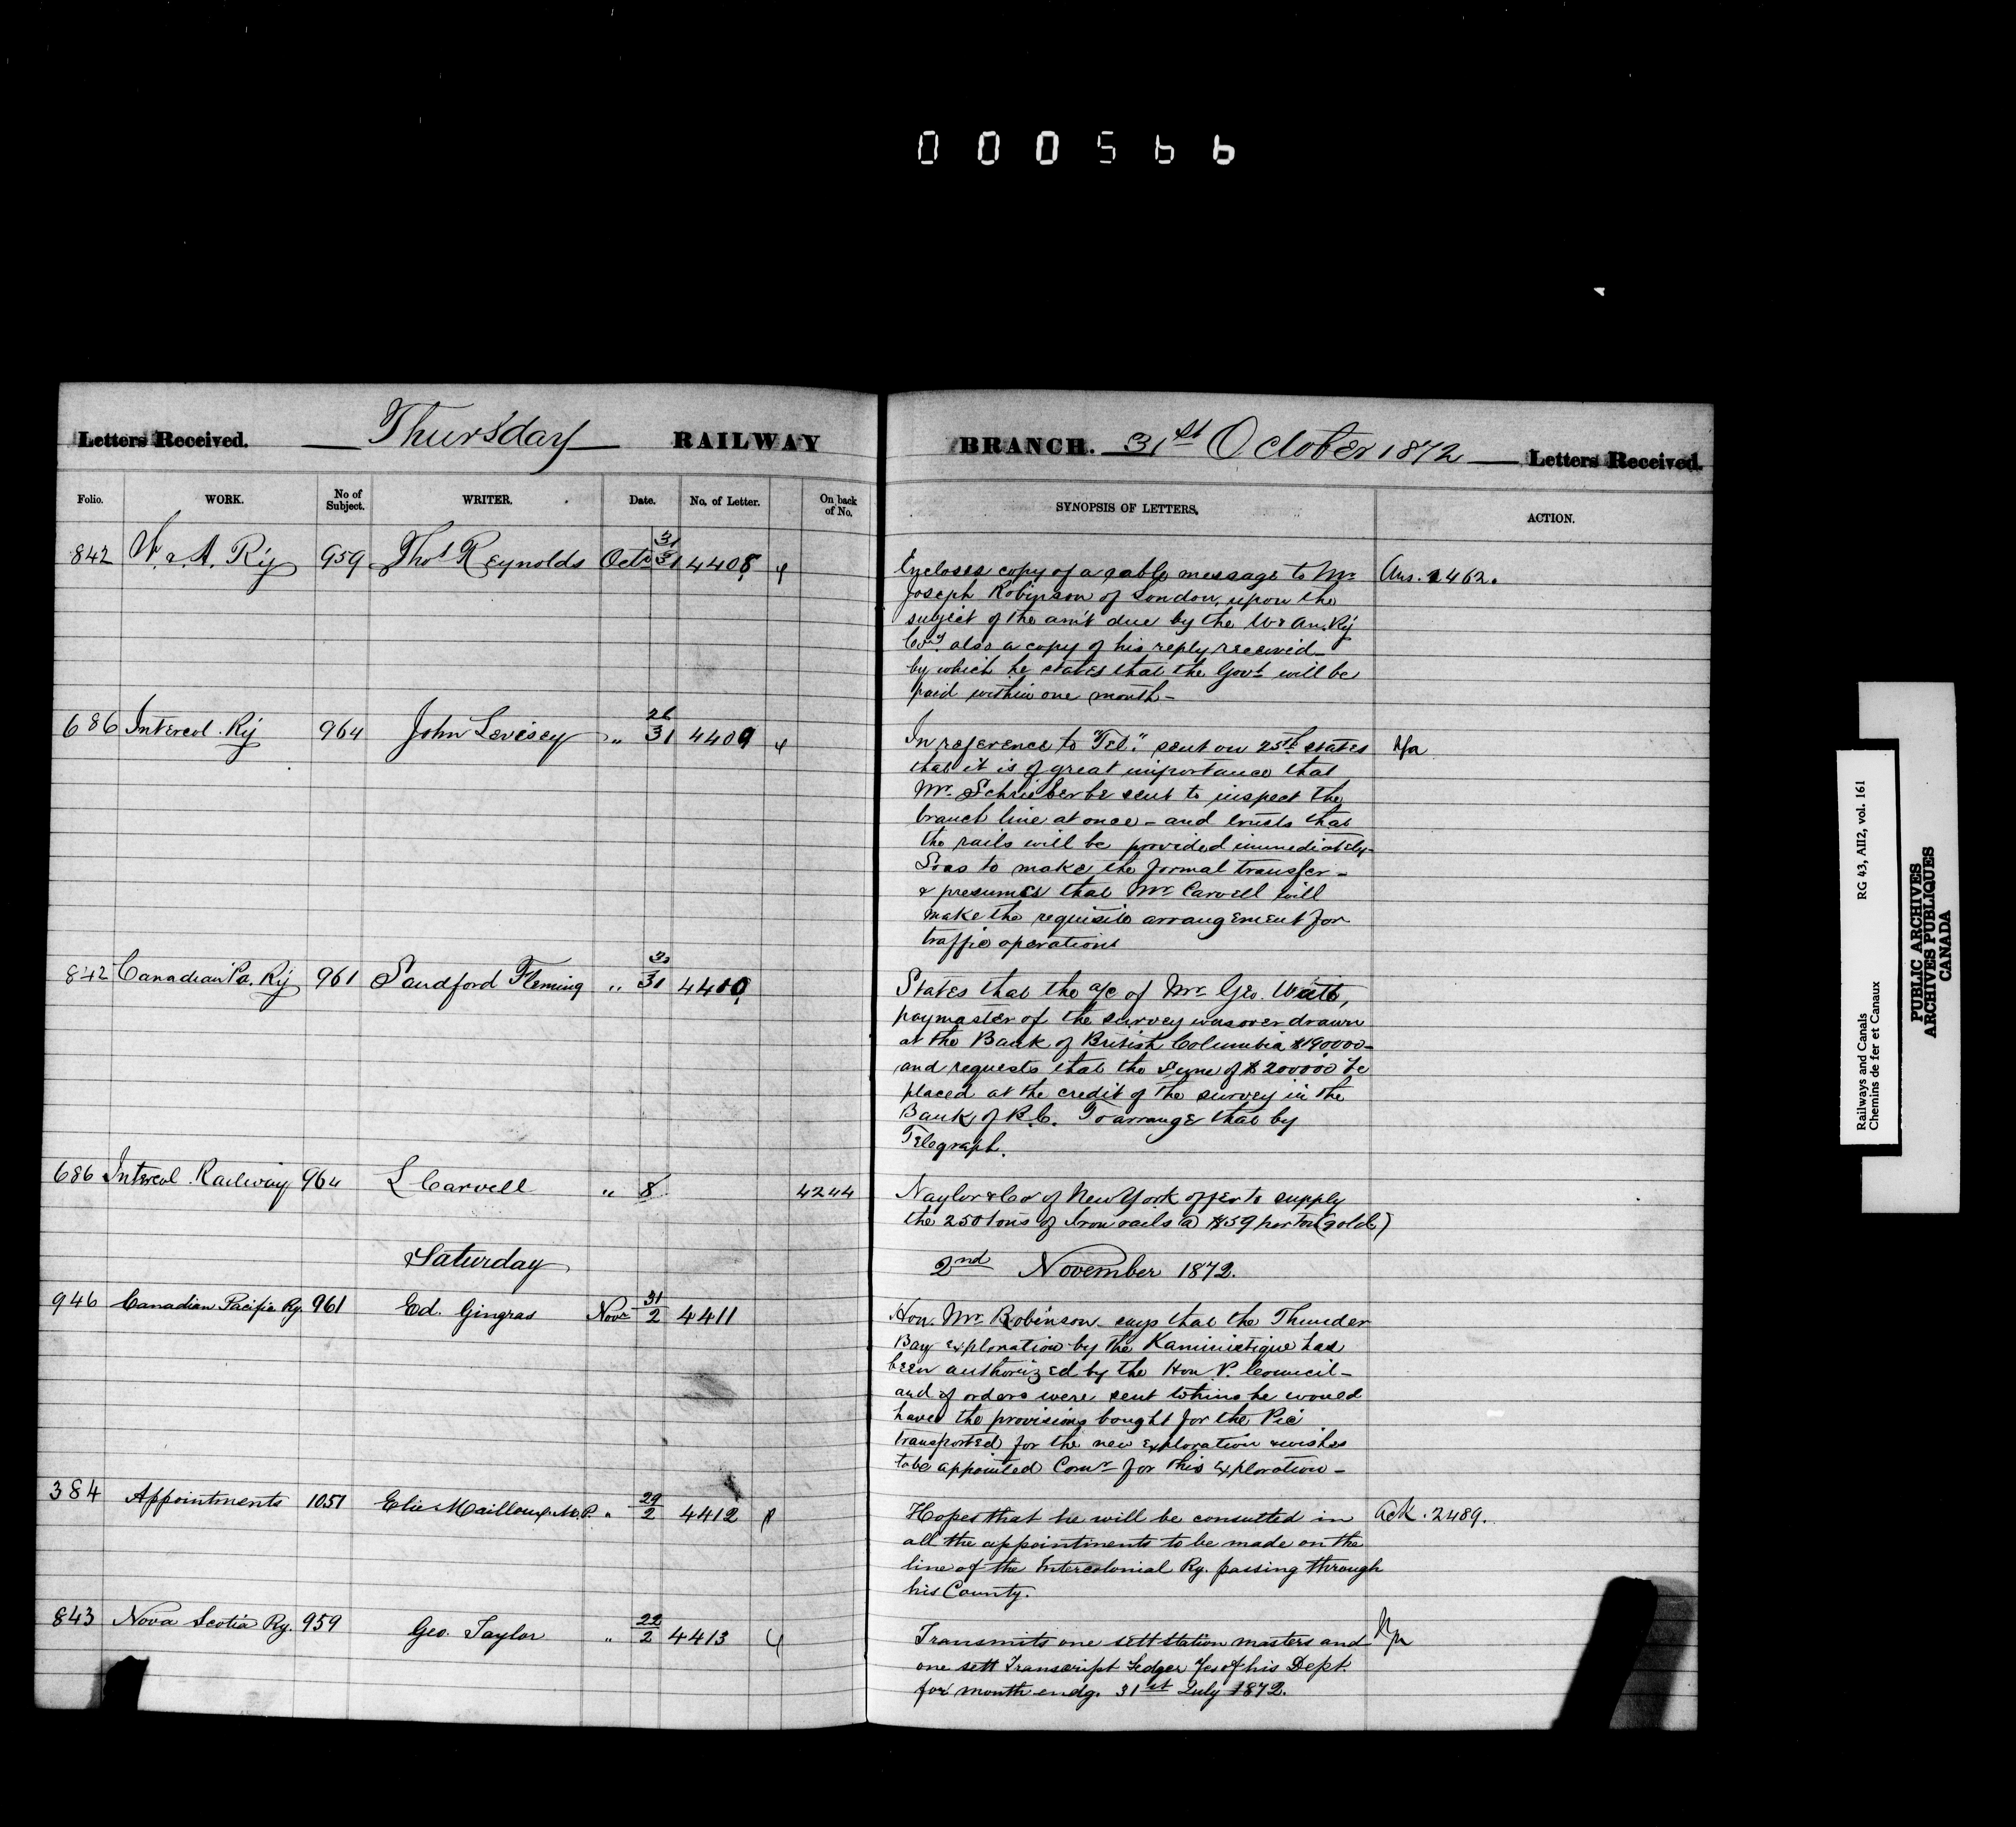 000566
Letters Received. Thursday RAILWAY
Folio. WORK. No of Subject. WRITER. Date. No. of Letter. On back of No.
842 W. & A. Ry 959 Thos Reynolds Octr 31/31 4408
686 Intercol. Ry 964 John Livesey " 26/31 4409
842 Canadian Pa. Ry 961 Sandford Fleming " 30/31 4410
686 Intercol. Railway 964 L Carvell " 8 4244
Saturday
946 Canadian Pacific Ry. 961 Ed. Gingras Novr 31/2 4411
384 Appointments 1051 Elie Mailloux M.P. " 29/2 4412
843 Nova Scotia Ry. 959 Geo. Taylor " 22/2 4413
BRANCH. 31st October 1872 Letters Received.
SYNOPSIS OF LETTERS. ACTION.
Encloses copy of a cable message to Mr Ans. 2462.
Joseph Robinson of London, upon the
subject of the am't due by the W & An. Ry
Coy. also a copy of his reply received
by which he states that the Govt will be
paid within one month -
In reference to "Tel." sent on 25th states
that it is of great importance that
Mr. Schrieber be sent to inspect the
branch line at once - and trusts that
the rails will be provided immediately
So as to make the formal transfer -
& presumes that Mr Carvell will
make the requisite arrangement for
traffic operations
States that the a/c of Mr Geo. Watt,
paymaster of the survey was over drawn
at the Bank of British Columbia $190000 -
and requests that the sum of $200000 be
placed at the credit of the survey in the
Bank of B.C. To arrange that by
Telegraph.
Naylor & Co of New York offer to supply
the 250 tons of Iron rails @ $59 per ton (gold)
2nd November 1872.
Hon. Mr Robinson says that the Thunder
Bay exploration by the Kaministique has
been authorized by the Hon P. Council -
and if orders were sent to him he would
have the provisions bought for the Pic
transported for the new exploration & wishes
to be appointed Comr for this exploration -
Hopes that he will be consulted in Ack. 2489.
all the appointments to be made on the
line of the Intercolonial Ry. passing through
his County.
Transmits one sett station masters and
one sett Transcript Ledger a/cs of his Dept.
for month endg. 31st July 1872.
Railways and Canals RG 43, AII2, vol. 161
Chemins de fer et Canaux
PUBLIC ARCHIVES
ARCHIVES PUBLIQUES
CANADA